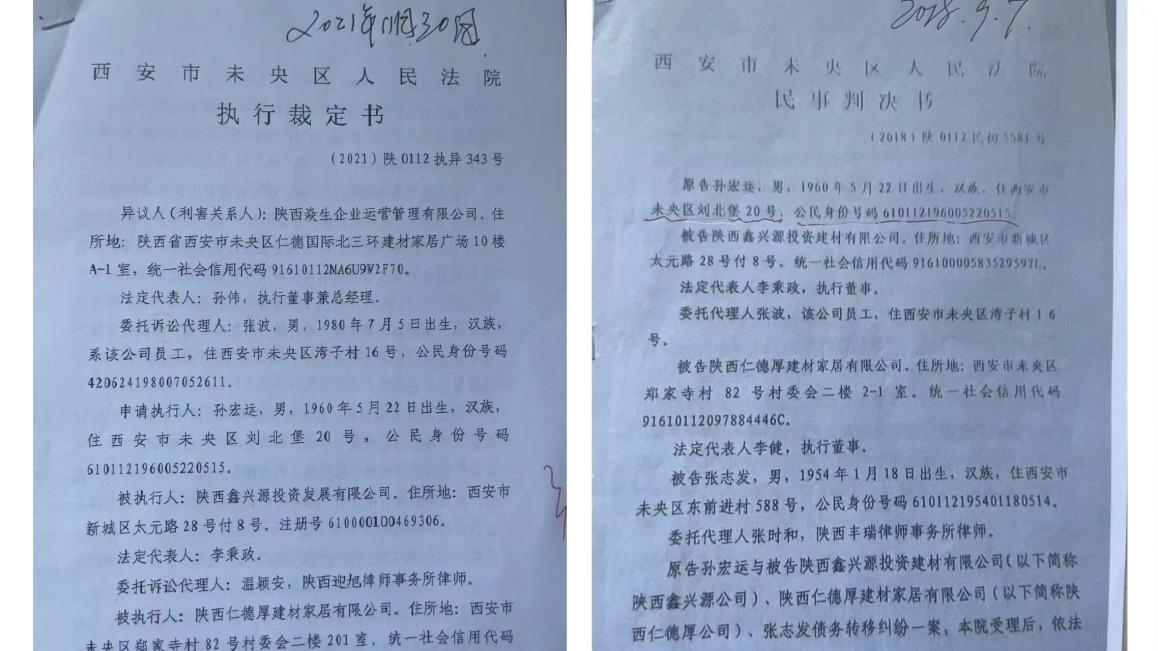 2021年11月30日
西安市未央区人民法院
执行裁定书
(2021)陕0112执异343号
异议人(利害关系人):陕西焱生企业运营管理有限公司。住
所地:陕西省西安市未央区仁德国际北三环建材家居广场10楼
A-1室,统一社会信用代码91610112MA6U9W2F70。
法定代表人:孙伟,执行董事兼总经理.
委托诉讼代理人:张波,男,1980年7月5日出生,汉族,
系该公司员工,住西安市未央区湾子村16号,公民身份号码
420624198007052611.
申请执行人:孙宏运,男,1960年5月22日出生,汉族,
住西安市未央区刘北堡20号,公民身份号码
610112196005220515.
被执行人:陕西鑫兴源投资发展有限公司.住所地:西安市
新城区太元路28号付8号。注册号610000100469306.
法定代表人:李秉政.
委托诉讼代理人:温颖安,陕西迎旭律师事务所律师.
被执行人:陕西仁德厚建材家居有限公司.住所地:西安市
未央区郑家寺村82号村委会二楼201室.统一社会信用代码
2018.9.7.
西安市未央区人民法院
民事判决书
(2018)陕0112民初5581号
原告孙宏运,男,1960年5月22日出生,汉族,住西安市
未央区刘北堡20号,公民身份号码610112196005220515.
被告陕西鑫兴源投资建材有限公司.住所地:西安市新城区
太元路28号付8号。统一社会信用代码91610000583529597L.
法定代表人李秉政,执行董事.
委托代理人张波,该公司员工,住西安市未央区湾子村16
号.
被告陕西仁德厚建材家居有限公司.住所地:西安市未央区
郑家寺村82号村委会二楼2-1室.统一社会信用代码
91610112097884446C.
法定代表人李健,执行董事.
被告张志发,男,1954年1月18日出生,汉族,住西安市
未央区东前进村588号,公民身份号码610112195401180514.
委托代理人张时和,陕西丰瑞律师事务所律师.
原告孙宏运与被告陕西鑫兴源投资建材有限公司(以下简称
陕西鑫兴源公司)、陕西仁德厚建材家居有限公司(以下简称陕
西仁德厚公司)、张志发债务转移纠纷一案,本院受理后,依法